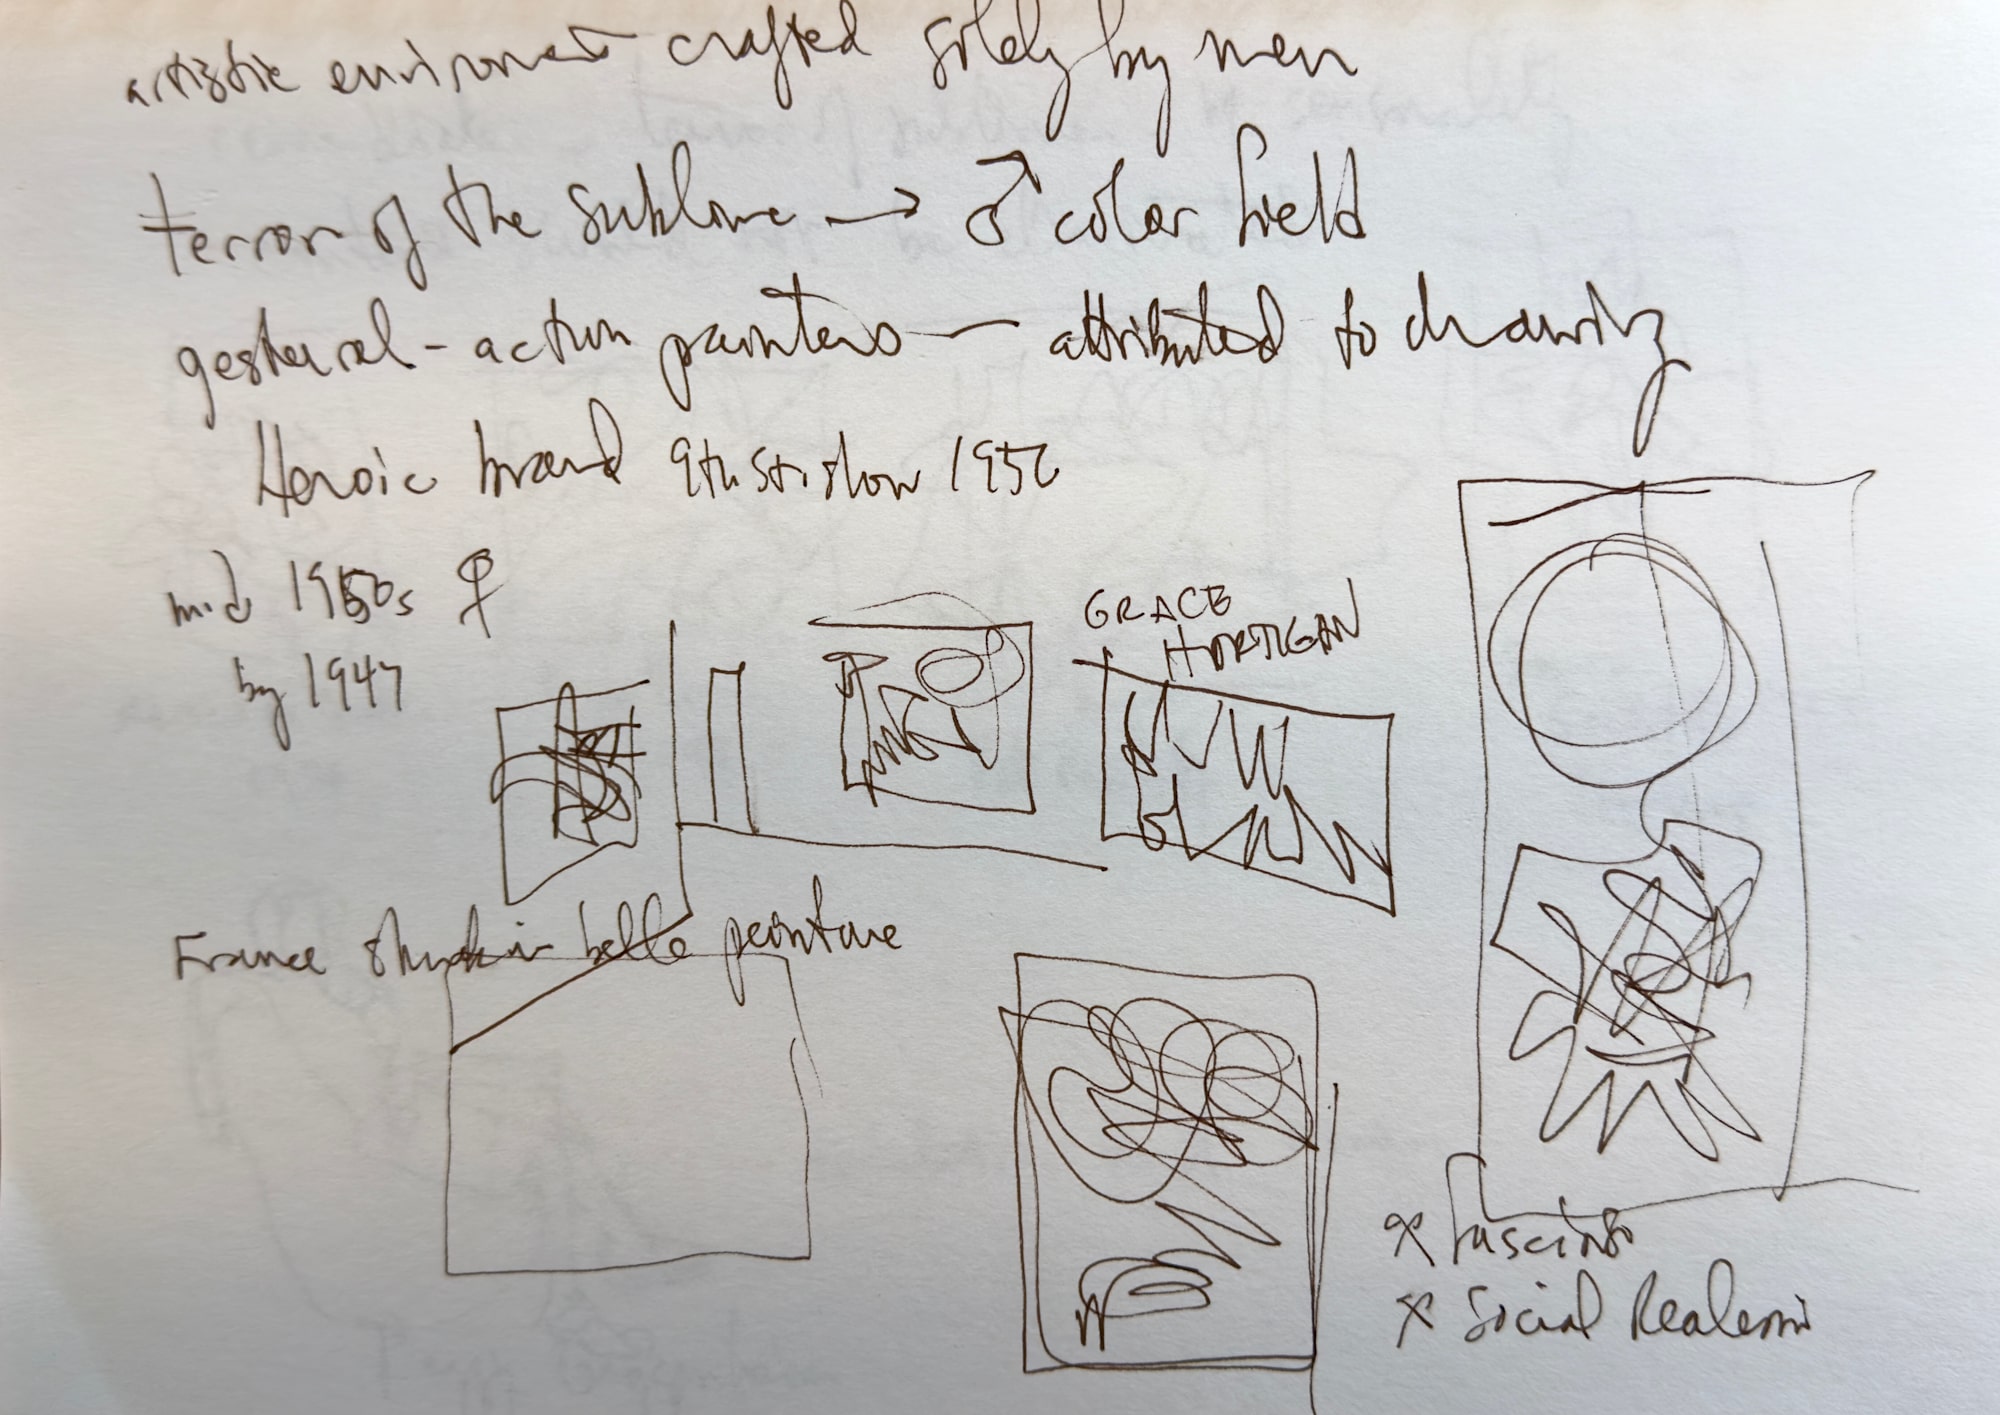 artistic environment crafted solely by men
terror of the sublime → ♂ color field
gestural - action painters — attributed to drawing
Heroic brand 9th St. show 1950
mid 1950s ♀
by 1947
GRACE
HARTIGAN
France stuck in belle peinture
x fascism
x Social Realism